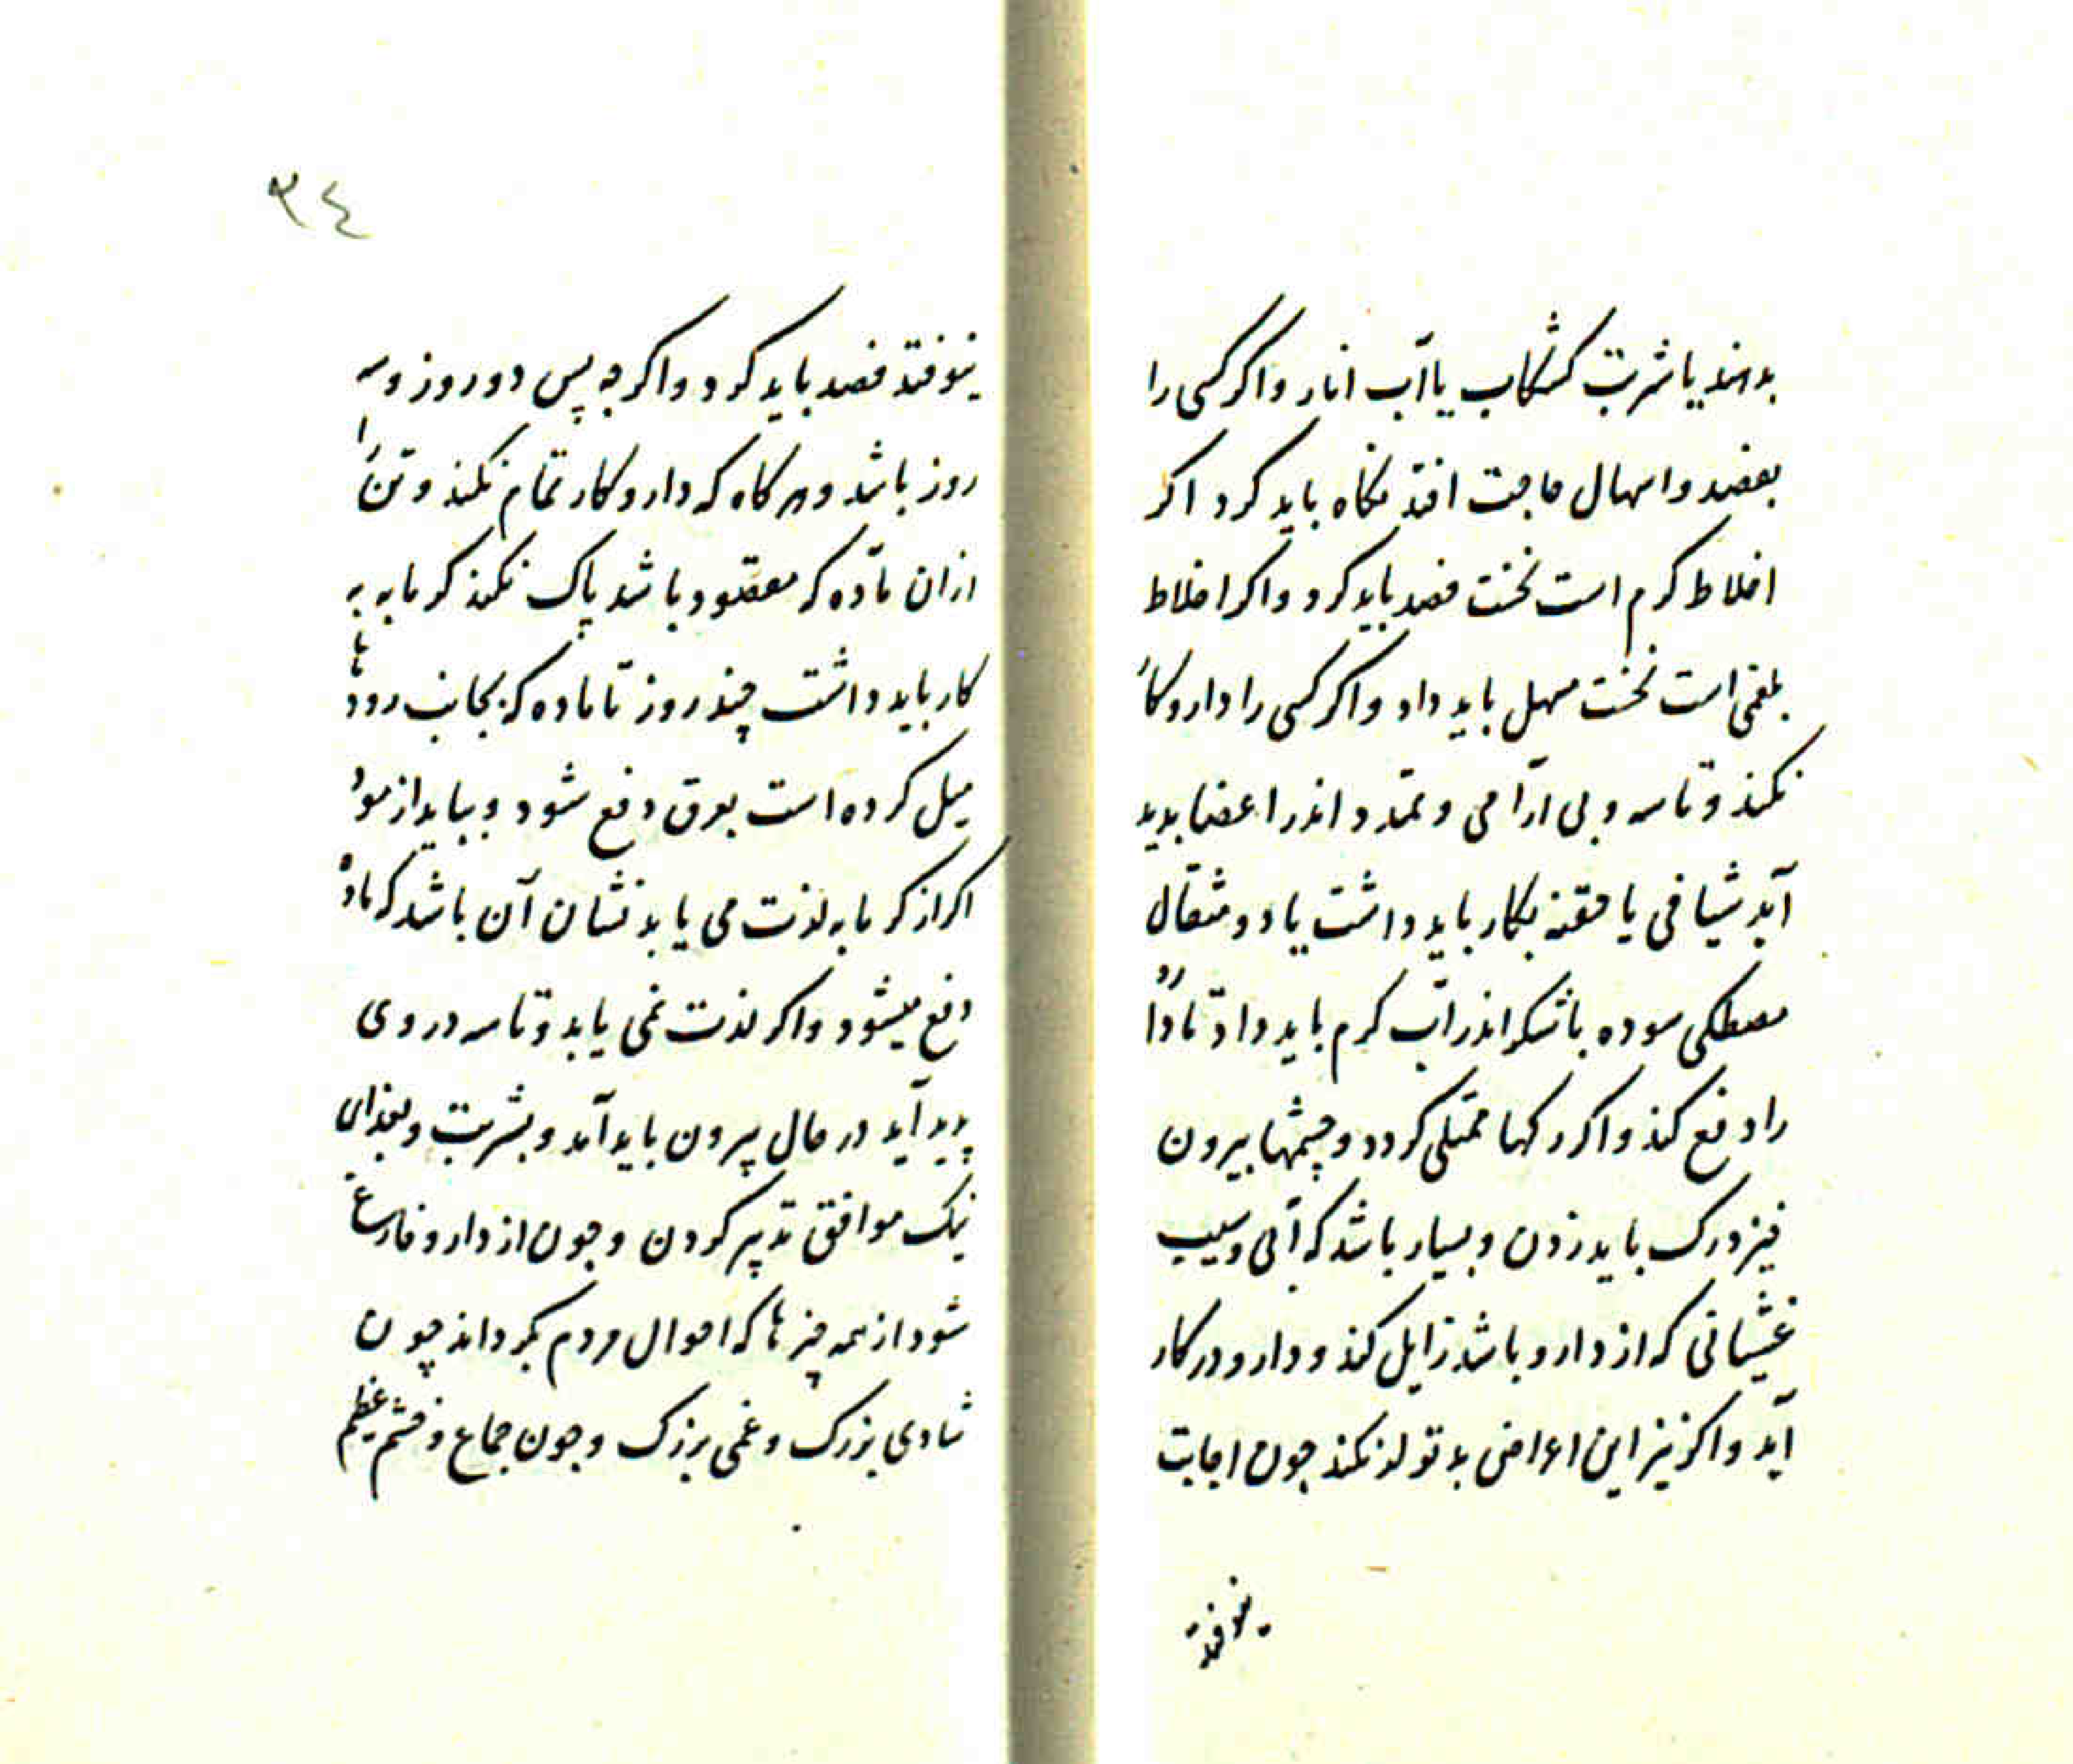 بدهند یا شربت کشکاب یا آب انار و اکر کسی را
بفصد و اسهال حاجت افتد نکاه باید کرد اکر
اخلاط کرم است نخست فصد باید کرد و اکر اخلاط
بلغمی است نخست مسهل باید داد و اکر کسی را دارو کار
نکند و تاسه و بی آرامی و تمدد اندر اعضا بدید
آید شیافی یا حقنه بکار باید داشت یا دو مثقال
مصطکی سوده با شکر اندر آب کرم باید داد تا دارو
را دفع کند و اکر رکها ممتلی کردد و چشمها بیرون
خیزد رک باید زدن و بسیار باشد که آبی و سیب
غشیانی که از دارو باشد زایل کند و دارو در کار
آید و اکر نیز این اعراض بد تولد نکند چون اجابت
نیوفتد
٣٤
نیوفتد فصد باید کرد و اکر جه پس دو روز و سه
روز باشد و هر کاه که دارو کار تمام نکند و تن را
ازان ماده که مقصود باشد پاک نکند کرمابه به
کار باید داشت چند روز تا ماده که بجانب رودها
میل کرده است بعرق دفع شود و بباید ازمود
اکر از کرمابه لذت می یابد نشان آن باشد که ماده
دفع میشود و اکر لذت نمی یابد و تاسه در وی
پدید آید در حال بیرون باید آمد و بشربت و بغذای
نیک موافق تدبیر کردن و جون از دارو فارغ
شود از همه چیزها که احوال مردم بکرداند چون
شادی بزرک و غمی بزرک و جون جماع و خشم عظیم